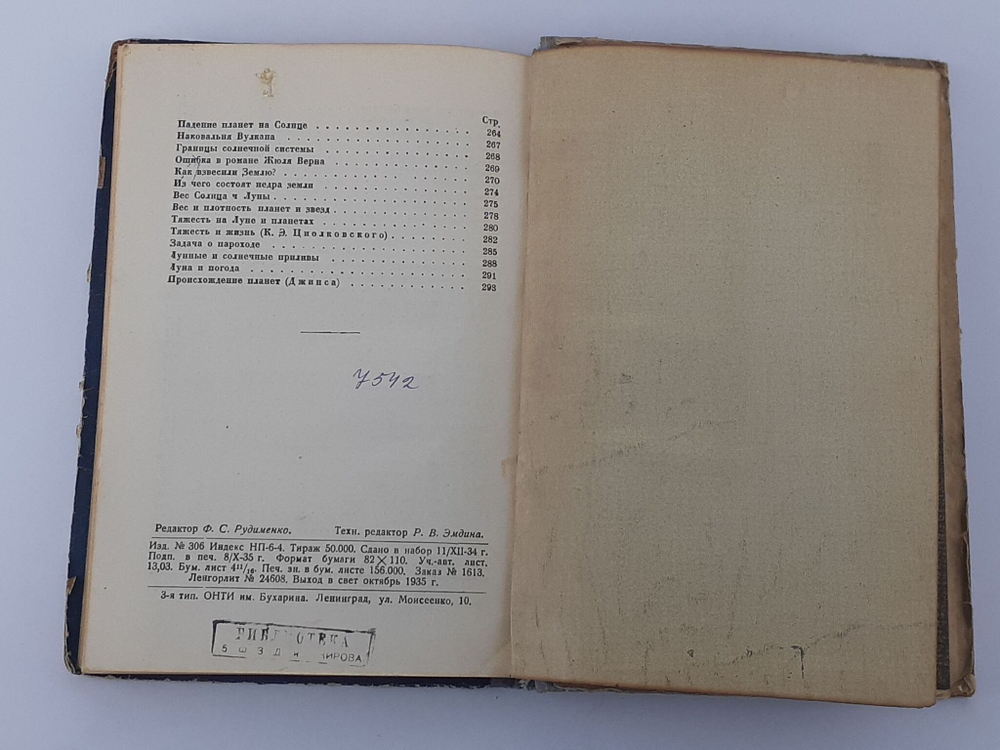 Стр.
Падение планет на Солнце . . . . . . . . . . . . . . . . 264
Наковальня Вулкана . . . . . . . . . . . . . . . . 267
Границы солнечной системы . . . . . . . . . . . . . . . . 268
Ошибка в романе Жюля Верна . . . . . . . . . . . . . . . . 269
Как взвесили Землю? . . . . . . . . . . . . . . . . 270
Из чего состоят недра земли . . . . . . . . . . . . . . . . 274
Вес Солнца и Луны . . . . . . . . . . . . . . . . 275
Вес и плотность планет и звезд . . . . . . . . . . . . . . . . 278
Тяжесть на Луне и планетах . . . . . . . . . . . . . . . . 280
Тяжесть и жизнь (К. Э. Циолковского) . . . . . . . . . . 282
Задача о пароходе . . . . . . . . . . . . . . . . 285
Лунные и солнечные приливы . . . . . . . . . . . . . . . . 288
Луна и погода . . . . . . . . . . . . . . . . 291
Происхождение планет (Джинса) . . . . . . . . . . . . 293
7542
Редактор Ф. С. Рудименко. Техн. редактор Р. В. Эмдина.
Изд. № 306 Индекс НП-6-4. Тираж 50.000. Сдано в набор 11/XII-34 г.
Подп. в печ. 8/X-35 г. Формат бумаги 82×110. Уч.-авт. лист.
13,03. Бум. лист 4¹¹/₁₆. Печ. зн. в бум. листе 156.000. Заказ № 1613.
Ленгорлит № 24608. Выход в свет октябрь 1935 г.
3-я тип. ОНТИ им. Бухарина. Ленинград, ул. Моисеенко, 10.
БИБЛИОТЕКА